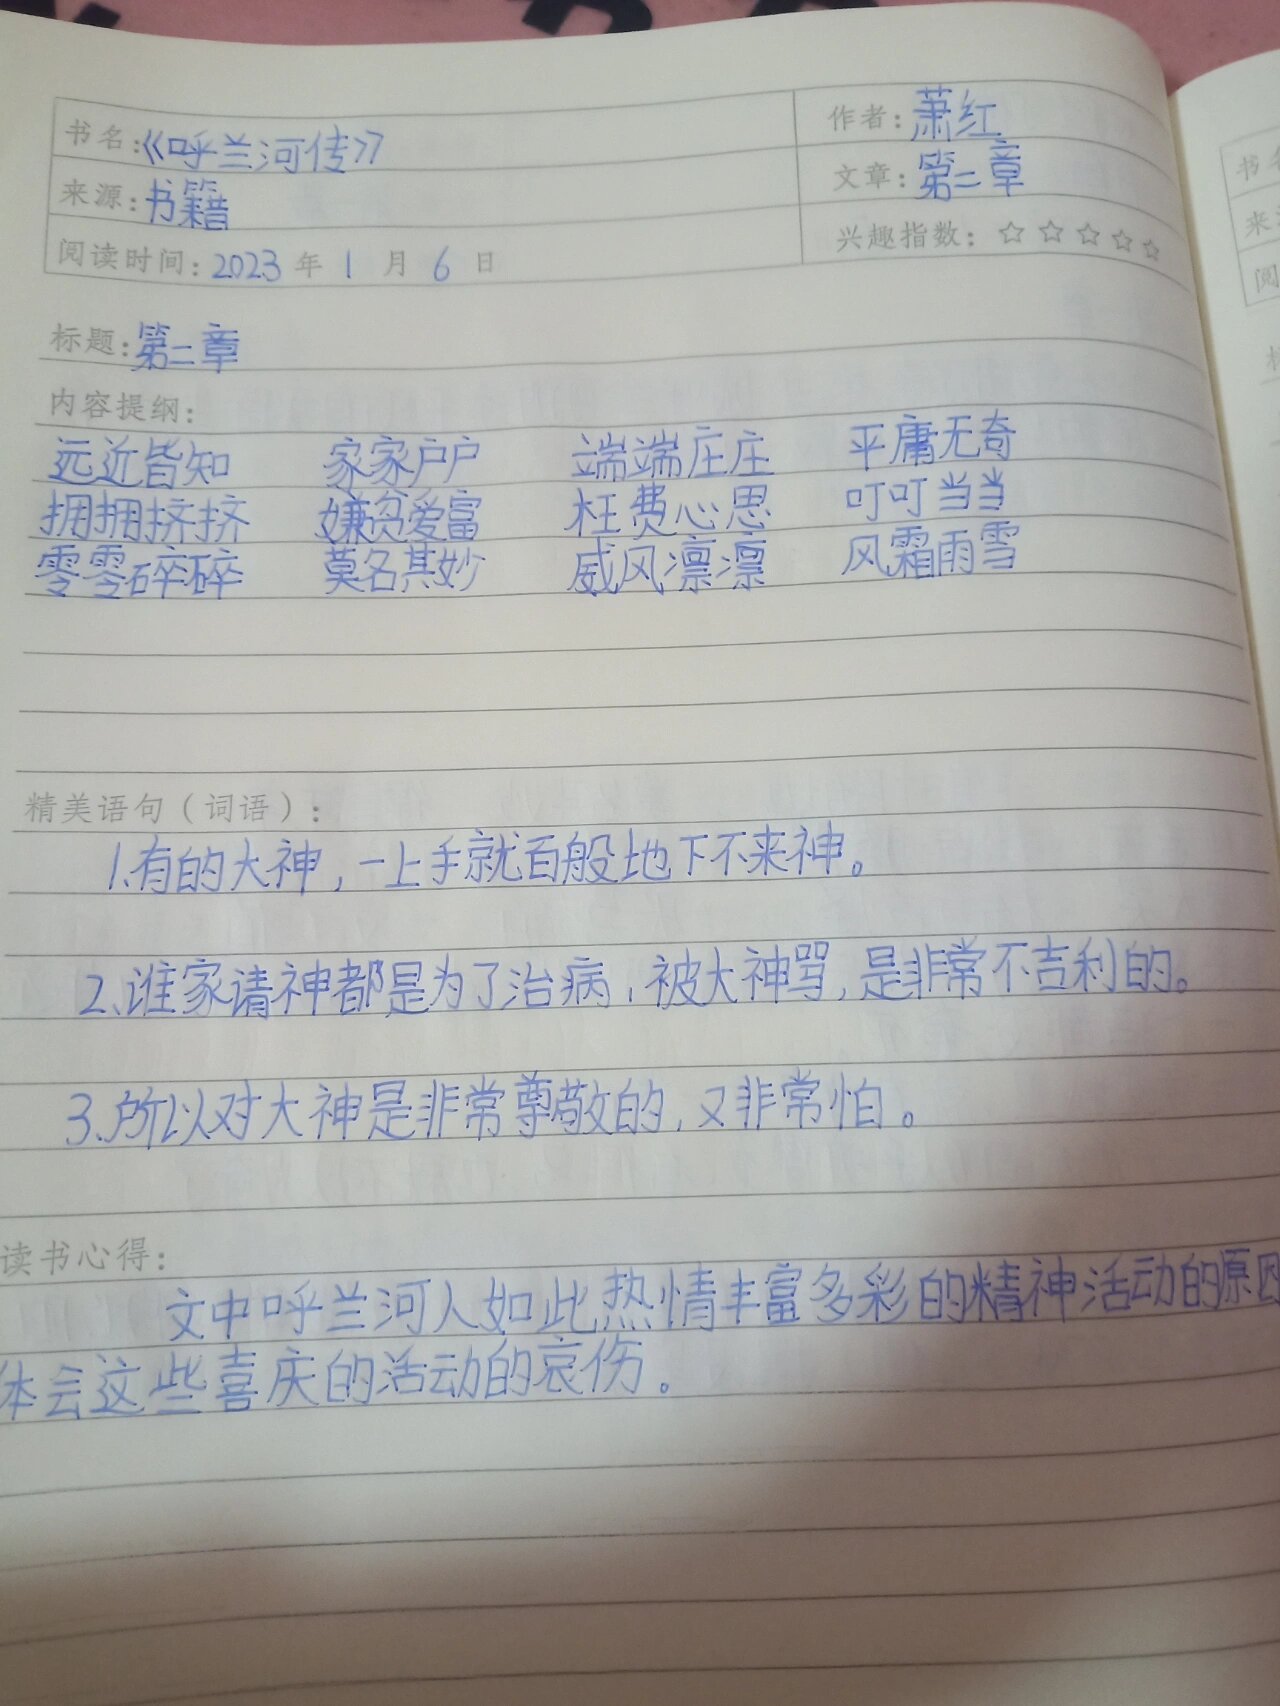 书名:《呼兰河传》 作者:萧红
来源:书籍 文章:第二章
阅读时间:2023年1月6日 兴趣指数:☆☆☆☆☆
标题:第二章
内容提纲:
远近皆知 家家户户 端端庄庄 平庸无奇
拥拥挤挤 嫌贫爱富 枉费心思 叮叮当当
零零碎碎 莫名其妙 威风凛凛 风霜雨雪
精美语句(词语):
1.有的大神,一上手就百般地下不来神。
2.谁家请神都是为了治病,被大神骂,是非常不吉利的。
3.所以对大神是非常尊敬的,又非常怕。
读书心得:
文中呼兰河人如此热情丰富多彩的精神活动的原因
体会这些喜庆的活动的哀伤。
书
来
阅